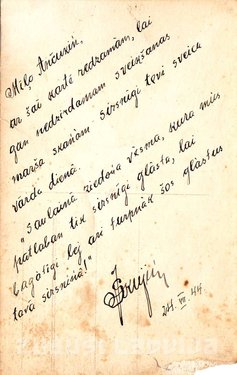 Mīļo Ančuxin,
ar šai kartē redzamam, lai
gan nedzirdamam sveikšanas
marša skaņām sirsnīgi tevi sveicu
vārda dienā.
"Saulainā ziedoņa vēsma, kura mūs
patlaban tik sirsnīgi glāsta, lai
bagātīgi lej arī turpmāk šos glāstus
tavā sirsniņā!"
24. VII. 44.